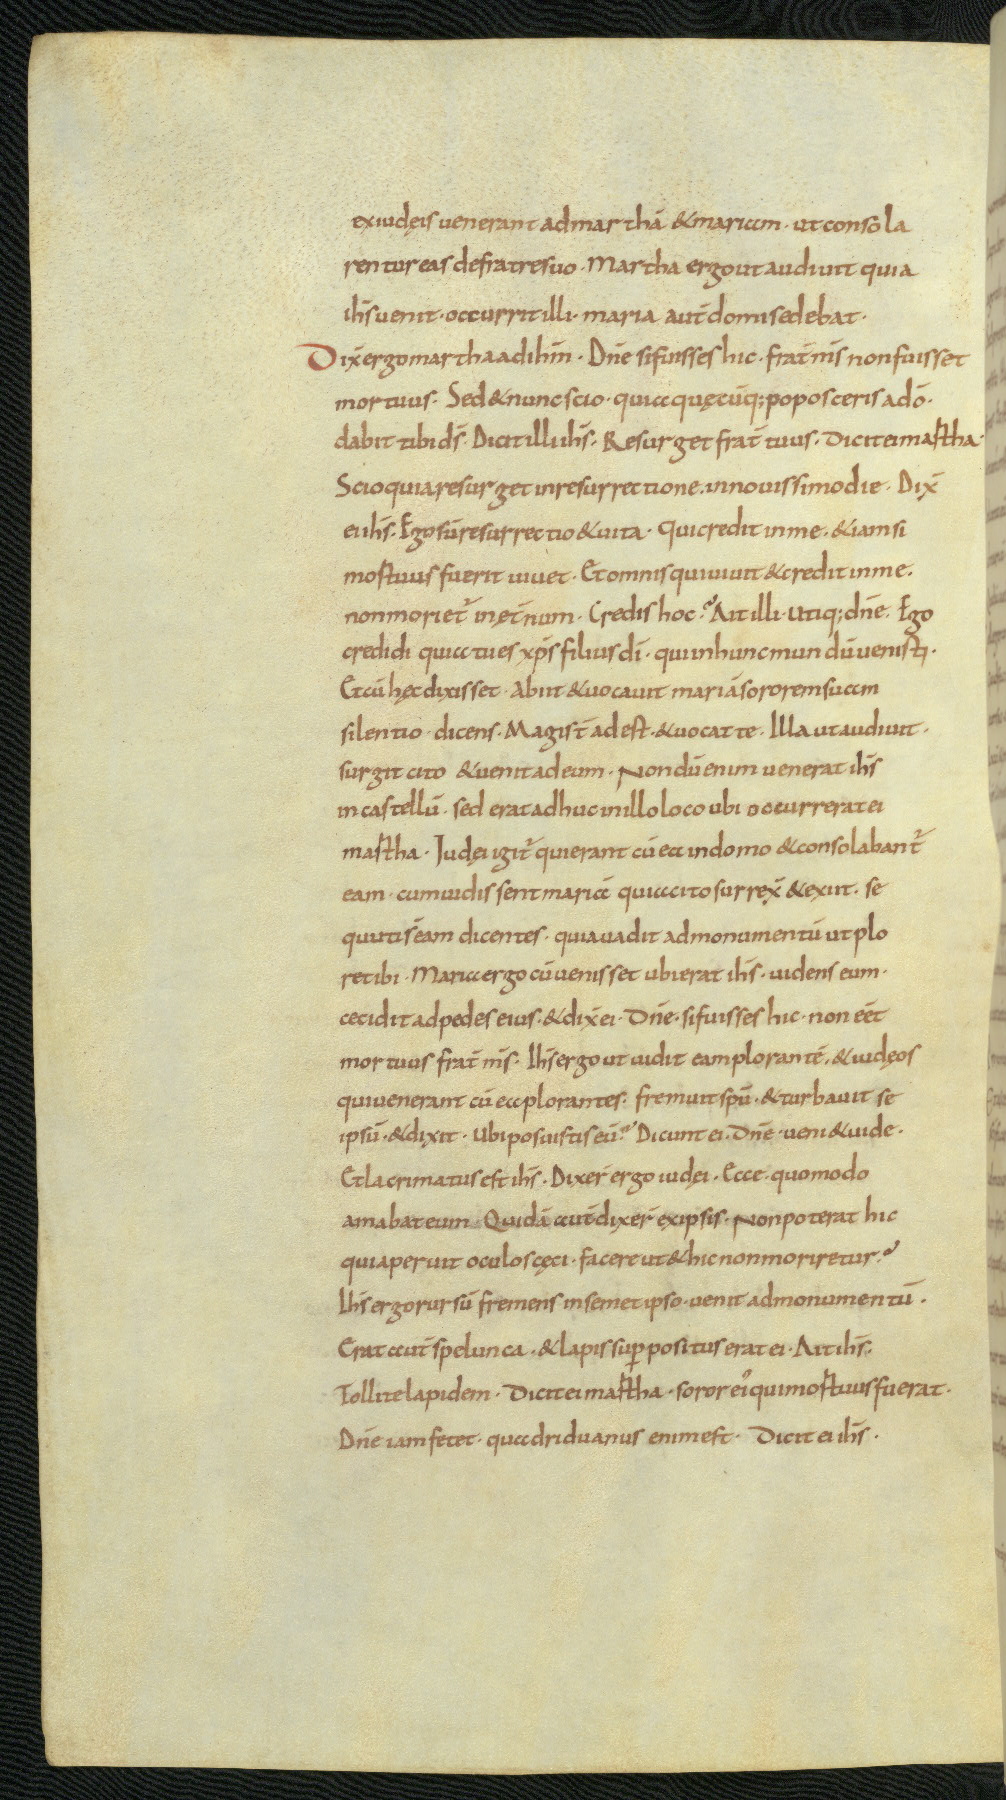 exiudęis uenerant ad marthā & mariam · ut consola
rentur eas de fratre suo · Martha ergo ut audiuit quia
ih̄s uenit · occurrit illi · maria aut̄ domi sedebat ·
Dix̄ ergo martha ad ih̄m · Dn̄e si fuisses hic · frat̄ m̄s non fuisset
mortuus · Sed & nunc scio · quia quęcūq; poposceris a dō ·
dabit tibi d̄s · Dicit illi ih̄s · Resurget frat̄ tuus · Dicit ei martha ·
Scio quia resurget in resurrectione · in nouissimo die · Dix̄
ei ih̄s · Ego sū resurrectio & uita · Qui credit in me · & iam si
mortuus fuerit uiuet · Et omnis qui uiuit & credit in me ·
non moriet᷑ in ęt̄num · Credis hoc ? Ait illi · Utiq; dn̄e · Ego
credidi quia tu es xp̄s filius dī · qui in hunc mundū uenisti ·
Et cū hęc dixisset · abiit & uocauit mariā sororem suam
silentio · dicens · Magist̄ adest · & uocat te · Illa ut audiuit ·
surgit cito & uenit ad eum · Nondū enim uenerat ih̄s
in castellū · sed erat adhuc in illo loco ubi occurrerat ei
martha · Iudęi igit᷑ qui erant cū ea in domo & consolabant᷑
eam · cum uidissent mariā quia cito surrex̄ & exiit · se
quuti s̄ eam dicentes · quia uadit ad monumentū ut plo
ret ibi · Maria ergo cū uenisset ubi erat ih̄s · uidens eum ·
cecidit ad pedes eius · & dix̄ ei · Dn̄e · si fuisses hic · non eēt
mortuus frat̄ m̄s · Ih̄s ergo ut uidit eam plorantē · & iudęos
qui uenerant cū ea plorantes · fremuit sp̄u · & turbauit se
ipsū · & dixit · Ubi posuistis eū ? Dicunt ei · Dn̄e · ueni & uide ·
Et lacrimatus est ih̄s · Dixer̄ ergo iudęi · Ecce · quomodo
amabat eum · Quidā aut̄ dixer̄ ex ipsis · Non poterat hic
qui aperuit oculos cęci · facere ut & hic non moriretur ?
Ih̄s ergo rursū fremens in semet ipso · uenit ad monumentū ·
Erat aut̄ spelunca · & lapis suꝑpositus erat ei · Ait ih̄s ·
Tollite lapidem · Dicit ei martha · soror ei᷒ qui mortuus fuerat ·
Dn̄e iam fetet · quadriduanus enim est · Dicit ei ih̄s ·